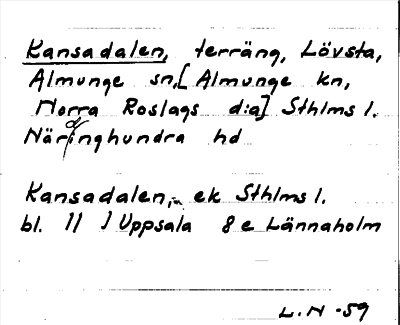 Kansadalen, terräng, Lövsta,
Almunge sn, [Almunge kn,
Norra Roslags d:a] Sthlms l.
Närdinghundra hd
Kansadalen, ek Sthlms l.
bl. 11 J Uppsala 8 e Lännaholm
L.N -59